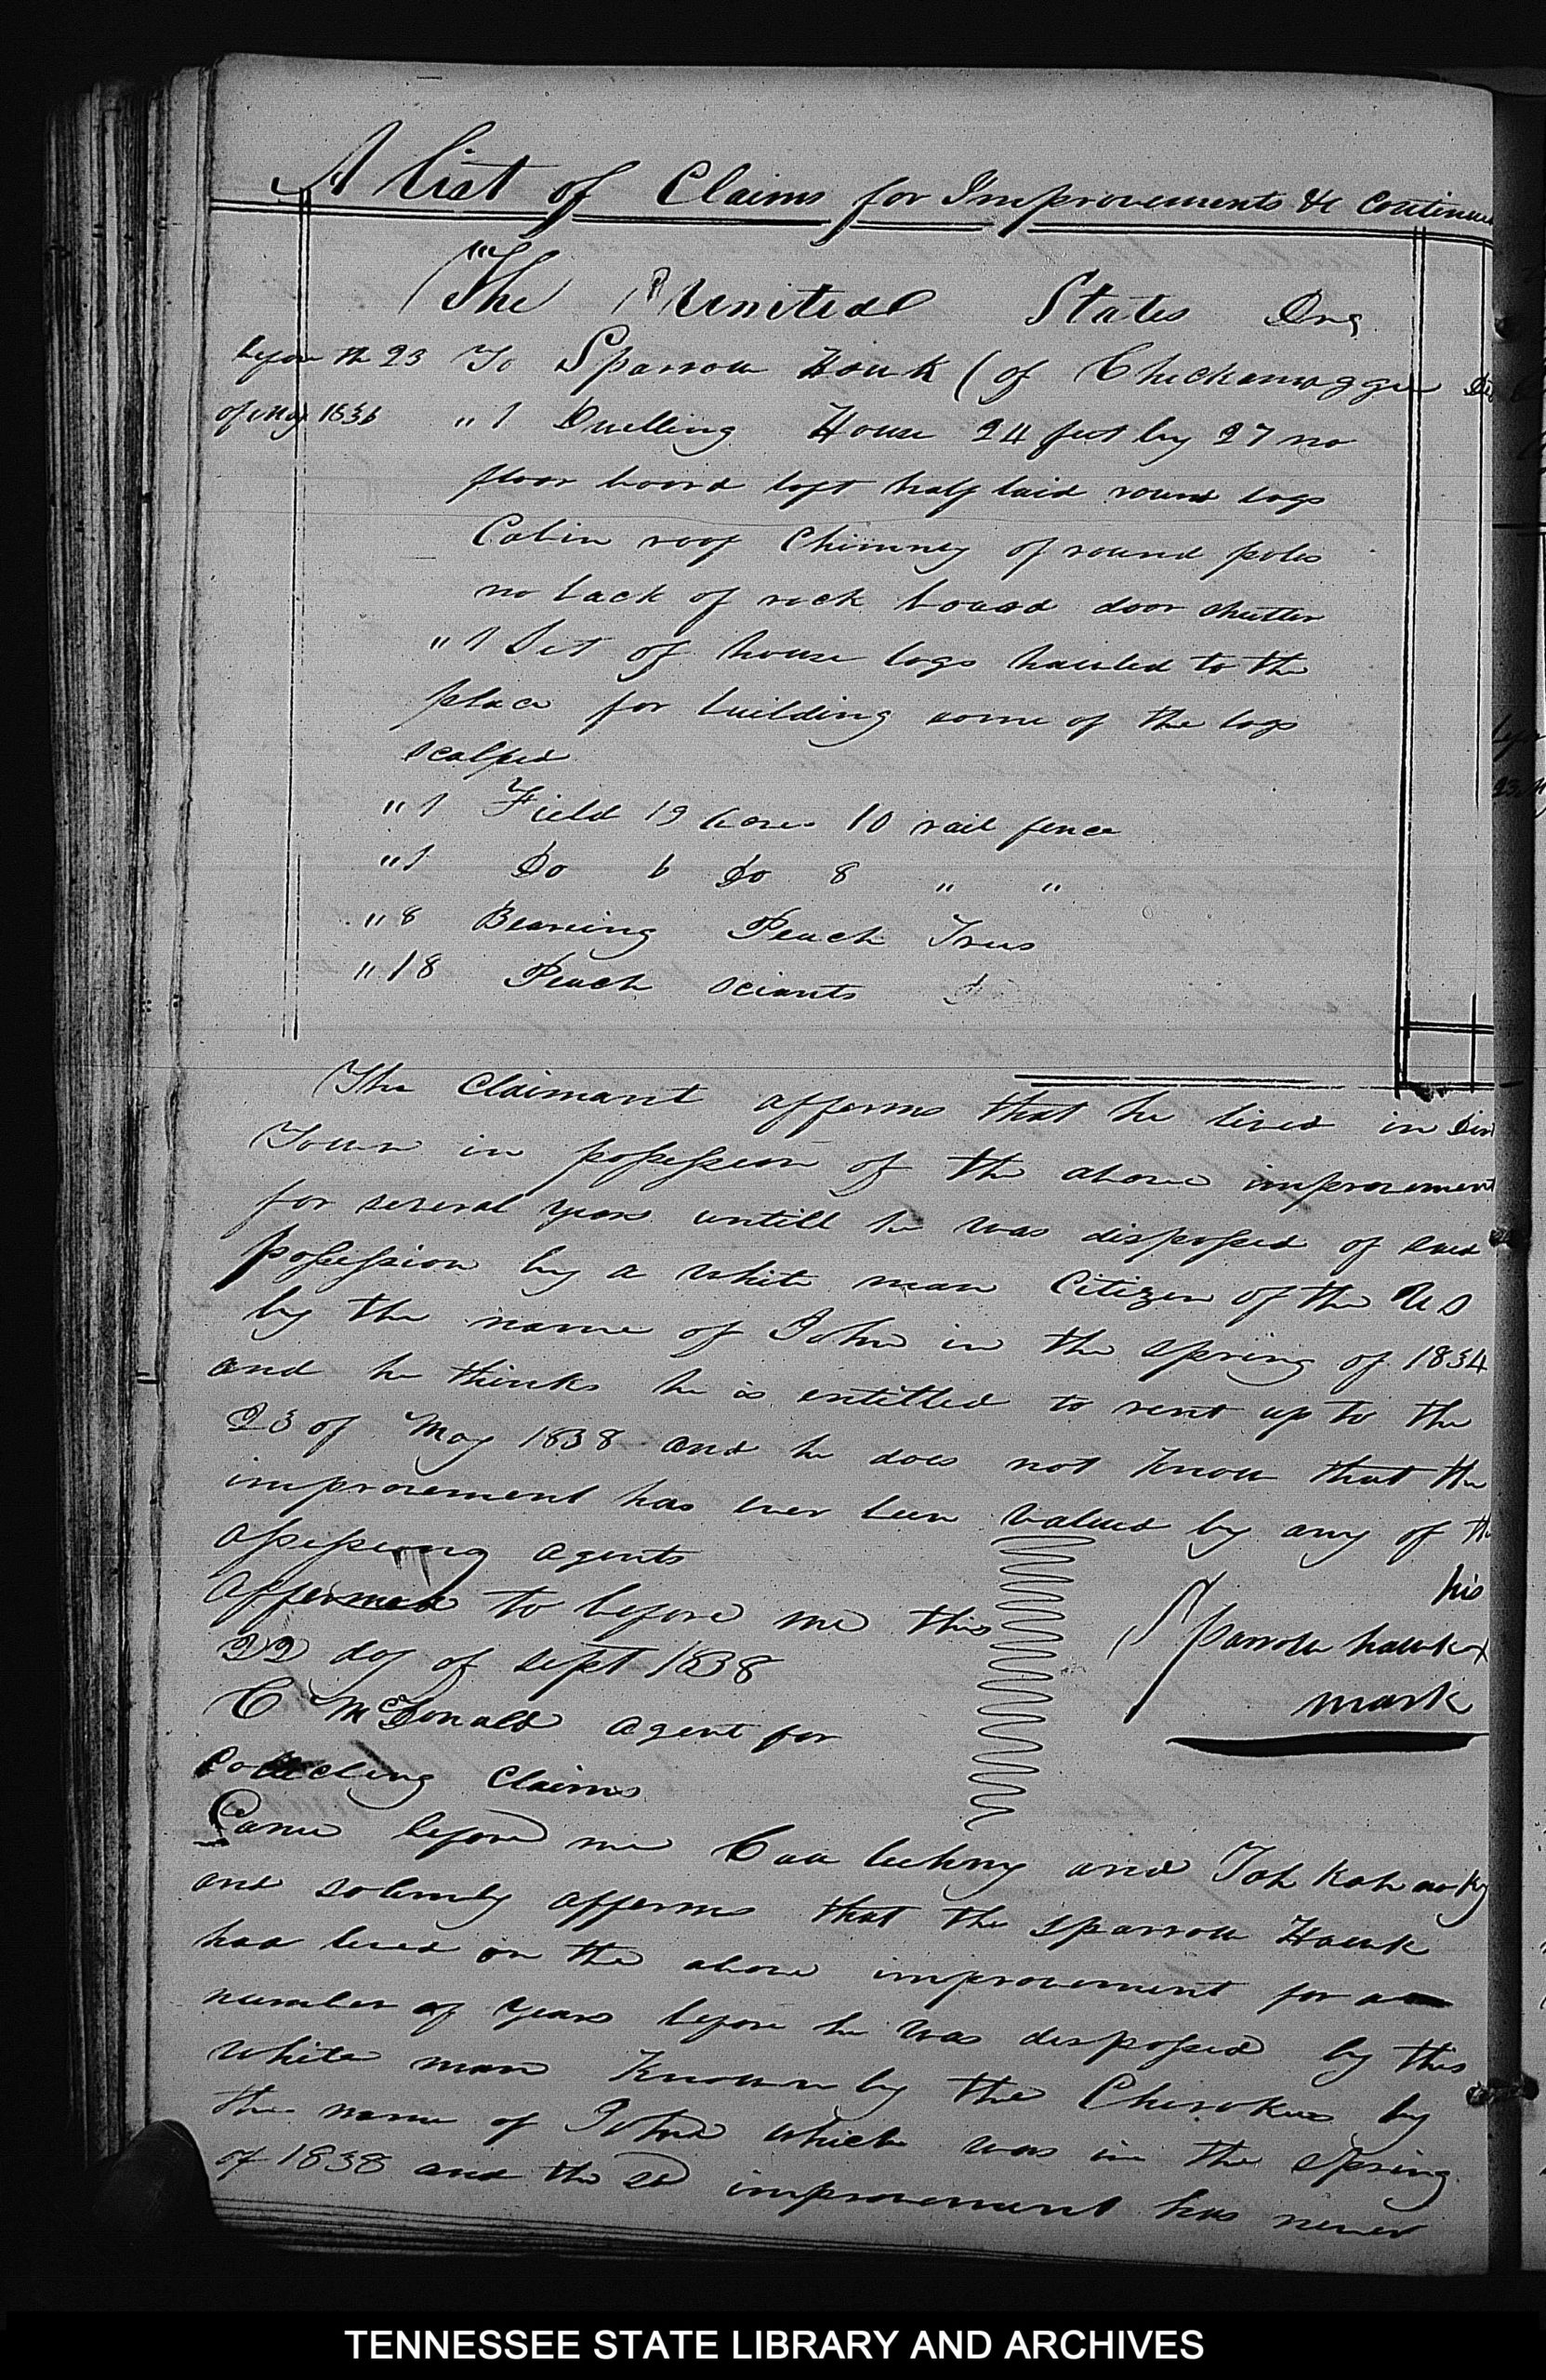 A List of Claims for Improvements &c Continued
The United States Drs
before the 23 To Sparrow Hawk (of Chickamagga Dis
of May 1836 " 1 Dwelling House 24 feet by 27 no
floor board loft half laid round logs
Cabin roof Chimney of round poles
no back of rock board door shutter
" 1 Set of house logs hauled to the
place for building some of the logs
scalped
" 1 Field 19 Acres 10 rail fence
" 1 Do 6 Do 8 " "
" 8 Bearing Peach Trees
" 18 Peach scients
The Claimant afferms that he lived in
Town in possession of the above improvement
for several years untill he was disposed of said
possession by a white man Citizen of the U S
by the name of John in the spring of 1834
and he thinks he is entitled to rent up to the
23 of May 1838 and he does not know that the
improvement has ever been valued by any of the
assessing agents
Affermed to before me this
22 day of Sept 1838
C McDonald agent for
Collecting Claims
his
Sparrow hawk x
mark
Came before me and
and solemnly afferms that the sparrow Hawk
had lived on the above improvement for a
number of years before he was disposed by this
white man Known by the Cherokees by
the name of John which was in the spring
of 1838 and the sd improvement has never
TENNESSEE STATE LIBRARY AND ARCHIVES